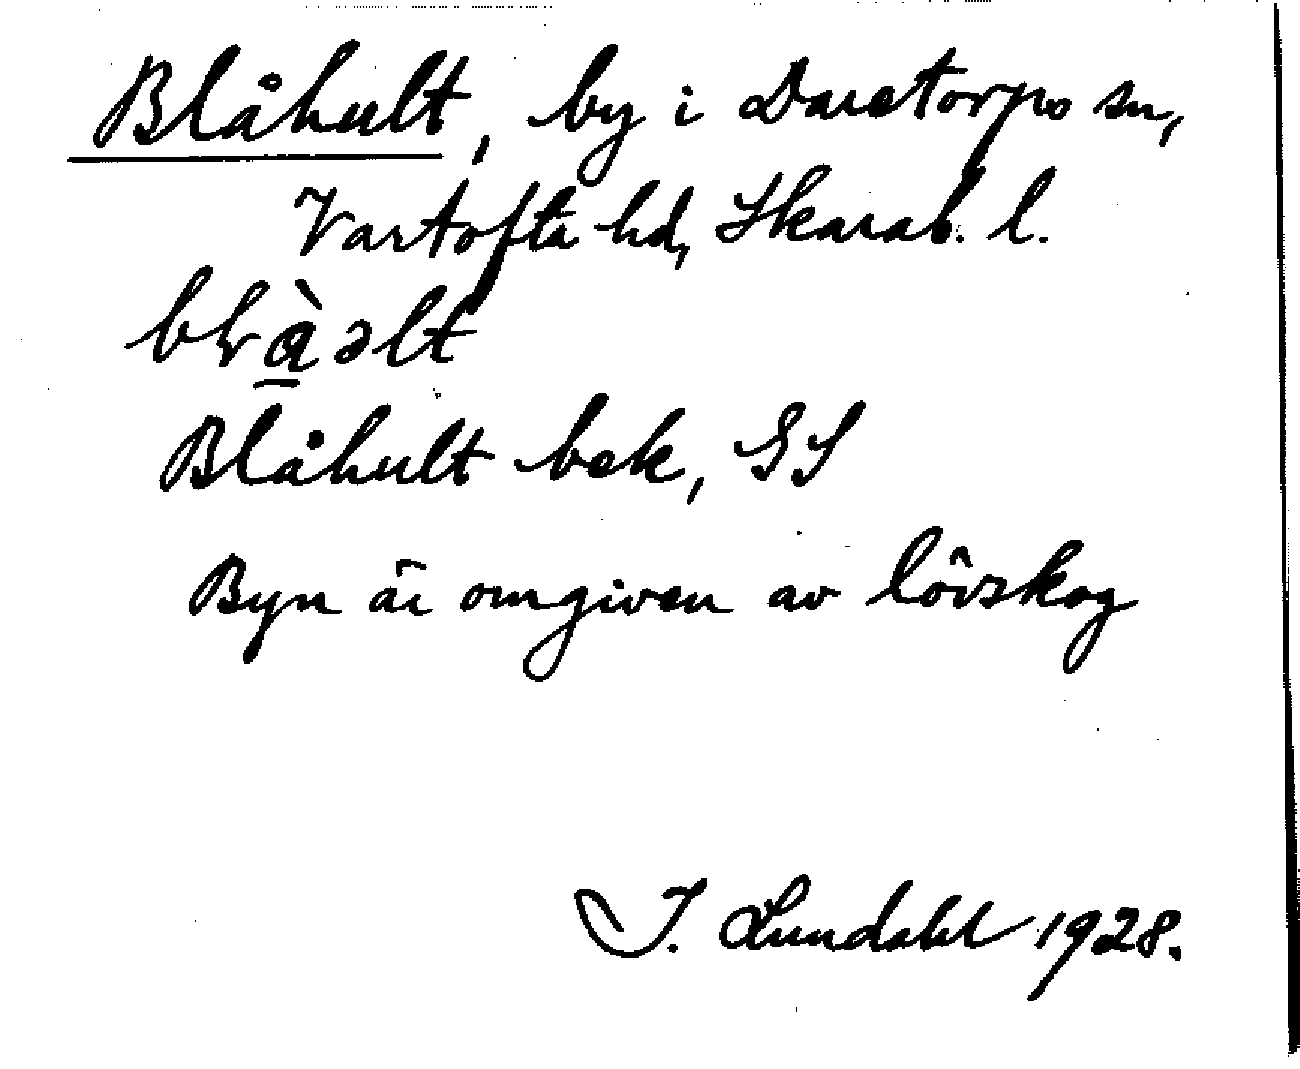 Blåhult, by i Daretorps sn,
Vartofta hd, Skarab. l.
blὰəlt
Blåhult bek, GS
Byn är omgiven av lövskog
I. Lundahl 1928.